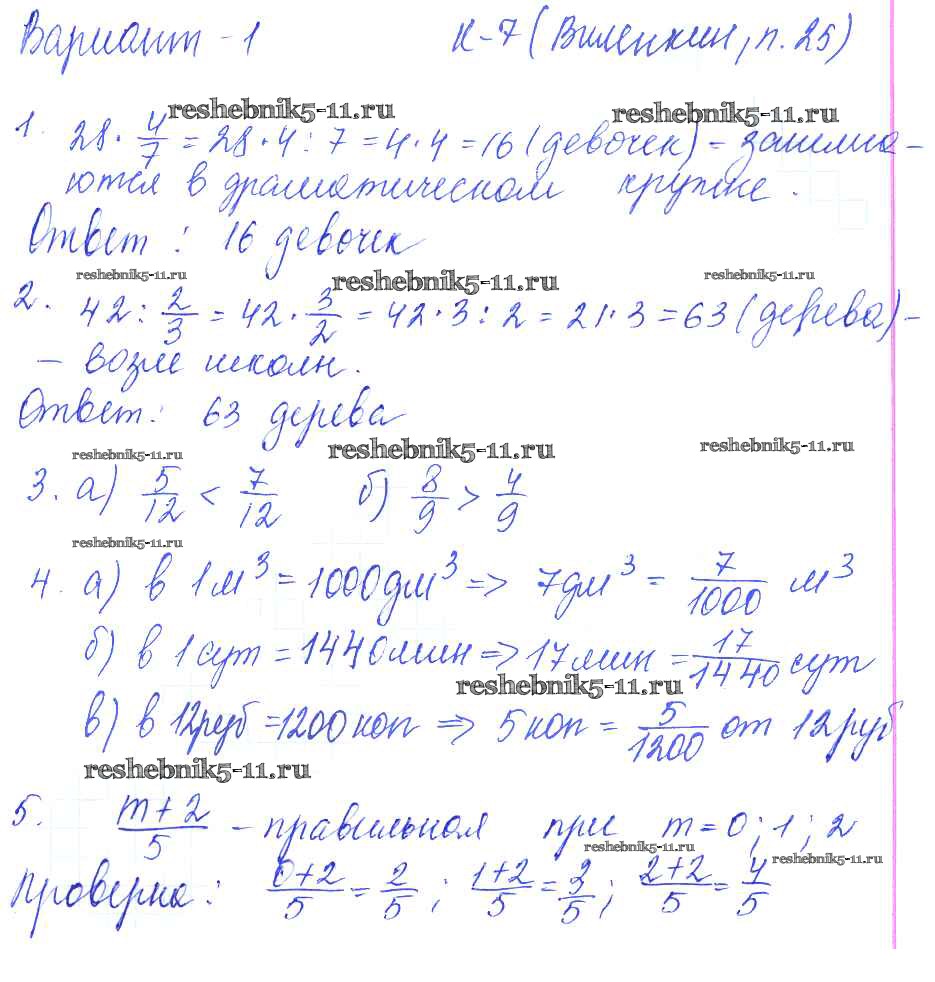 Вариант - 1 К-7 (Виленкин, п. 25)
reshebnik5-11.ru reshebnik5-11.ru
1. 28 · 4/7 = 28 · 4 : 7 = 4 · 4 = 16 (девочек) - занима-
ются в драматическом кружке.
Ответ : 16 девочек
reshebnik5-11.ru reshebnik5-11.ru reshebnik5-11.ru
2. 42 : 2/3 = 42 · 3/2 = 42 · 3 : 2 = 21 · 3 = 63 (дерева) -
- возле школы.
Ответ: 63 дерева
reshebnik5-11.ru reshebnik5-11.ru reshebnik5-11.ru
3. а) 5/12 < 7/12 б) 8/9 > 4/9
reshebnik5-11.ru
4. а) в 1м³ = 1000дм³ => 7дм³ = 7/1000 м³
б) в 1 сут = 1440мин => 17мин = 17/1440 сут
reshebnik5-11.ru
в) в 12руб = 1200 коп => 5 коп = 5/1200 от 12руб
reshebnik5-11.ru
5. m+2/5 - правильная при m = 0 ; 1 ; 2
reshebnik5-11.ru reshebnik5-11.ru
Проверка : 0+2/5 = 2/5 ; 1+2/5 = 3/5 ; 2+2/5 = 4/5